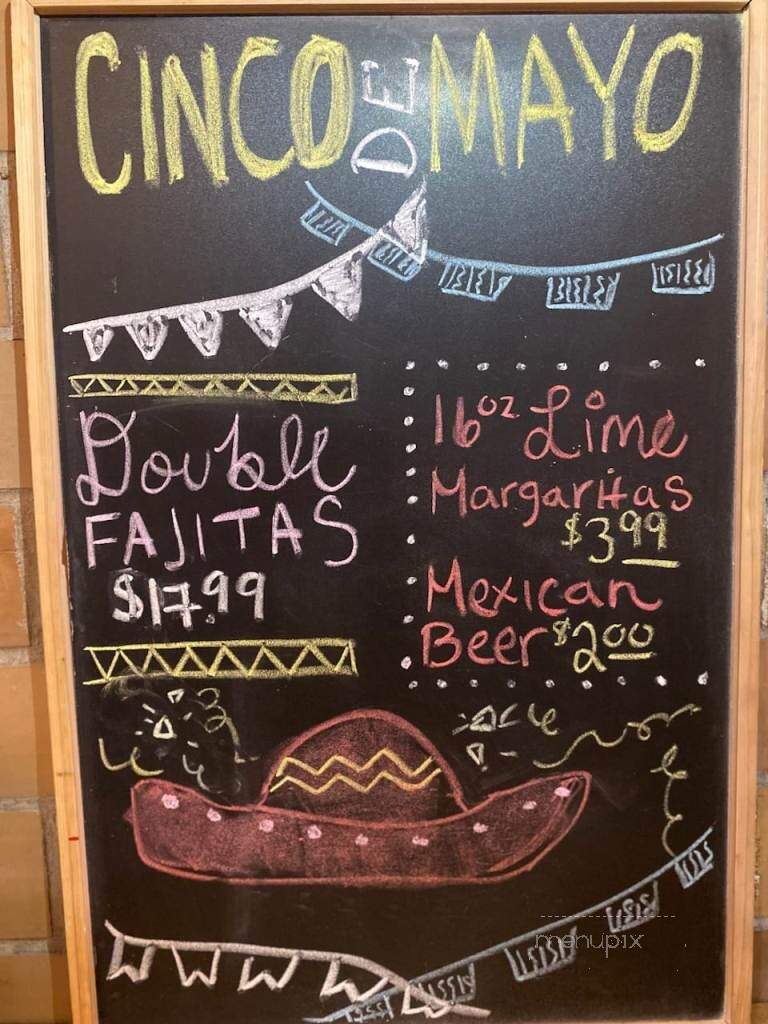 CINCO DE MAYO
Double
FAJITAS
$17.99
16oz Lime
Margaritas
$3.99
Mexican
Beer $2.00
menupix